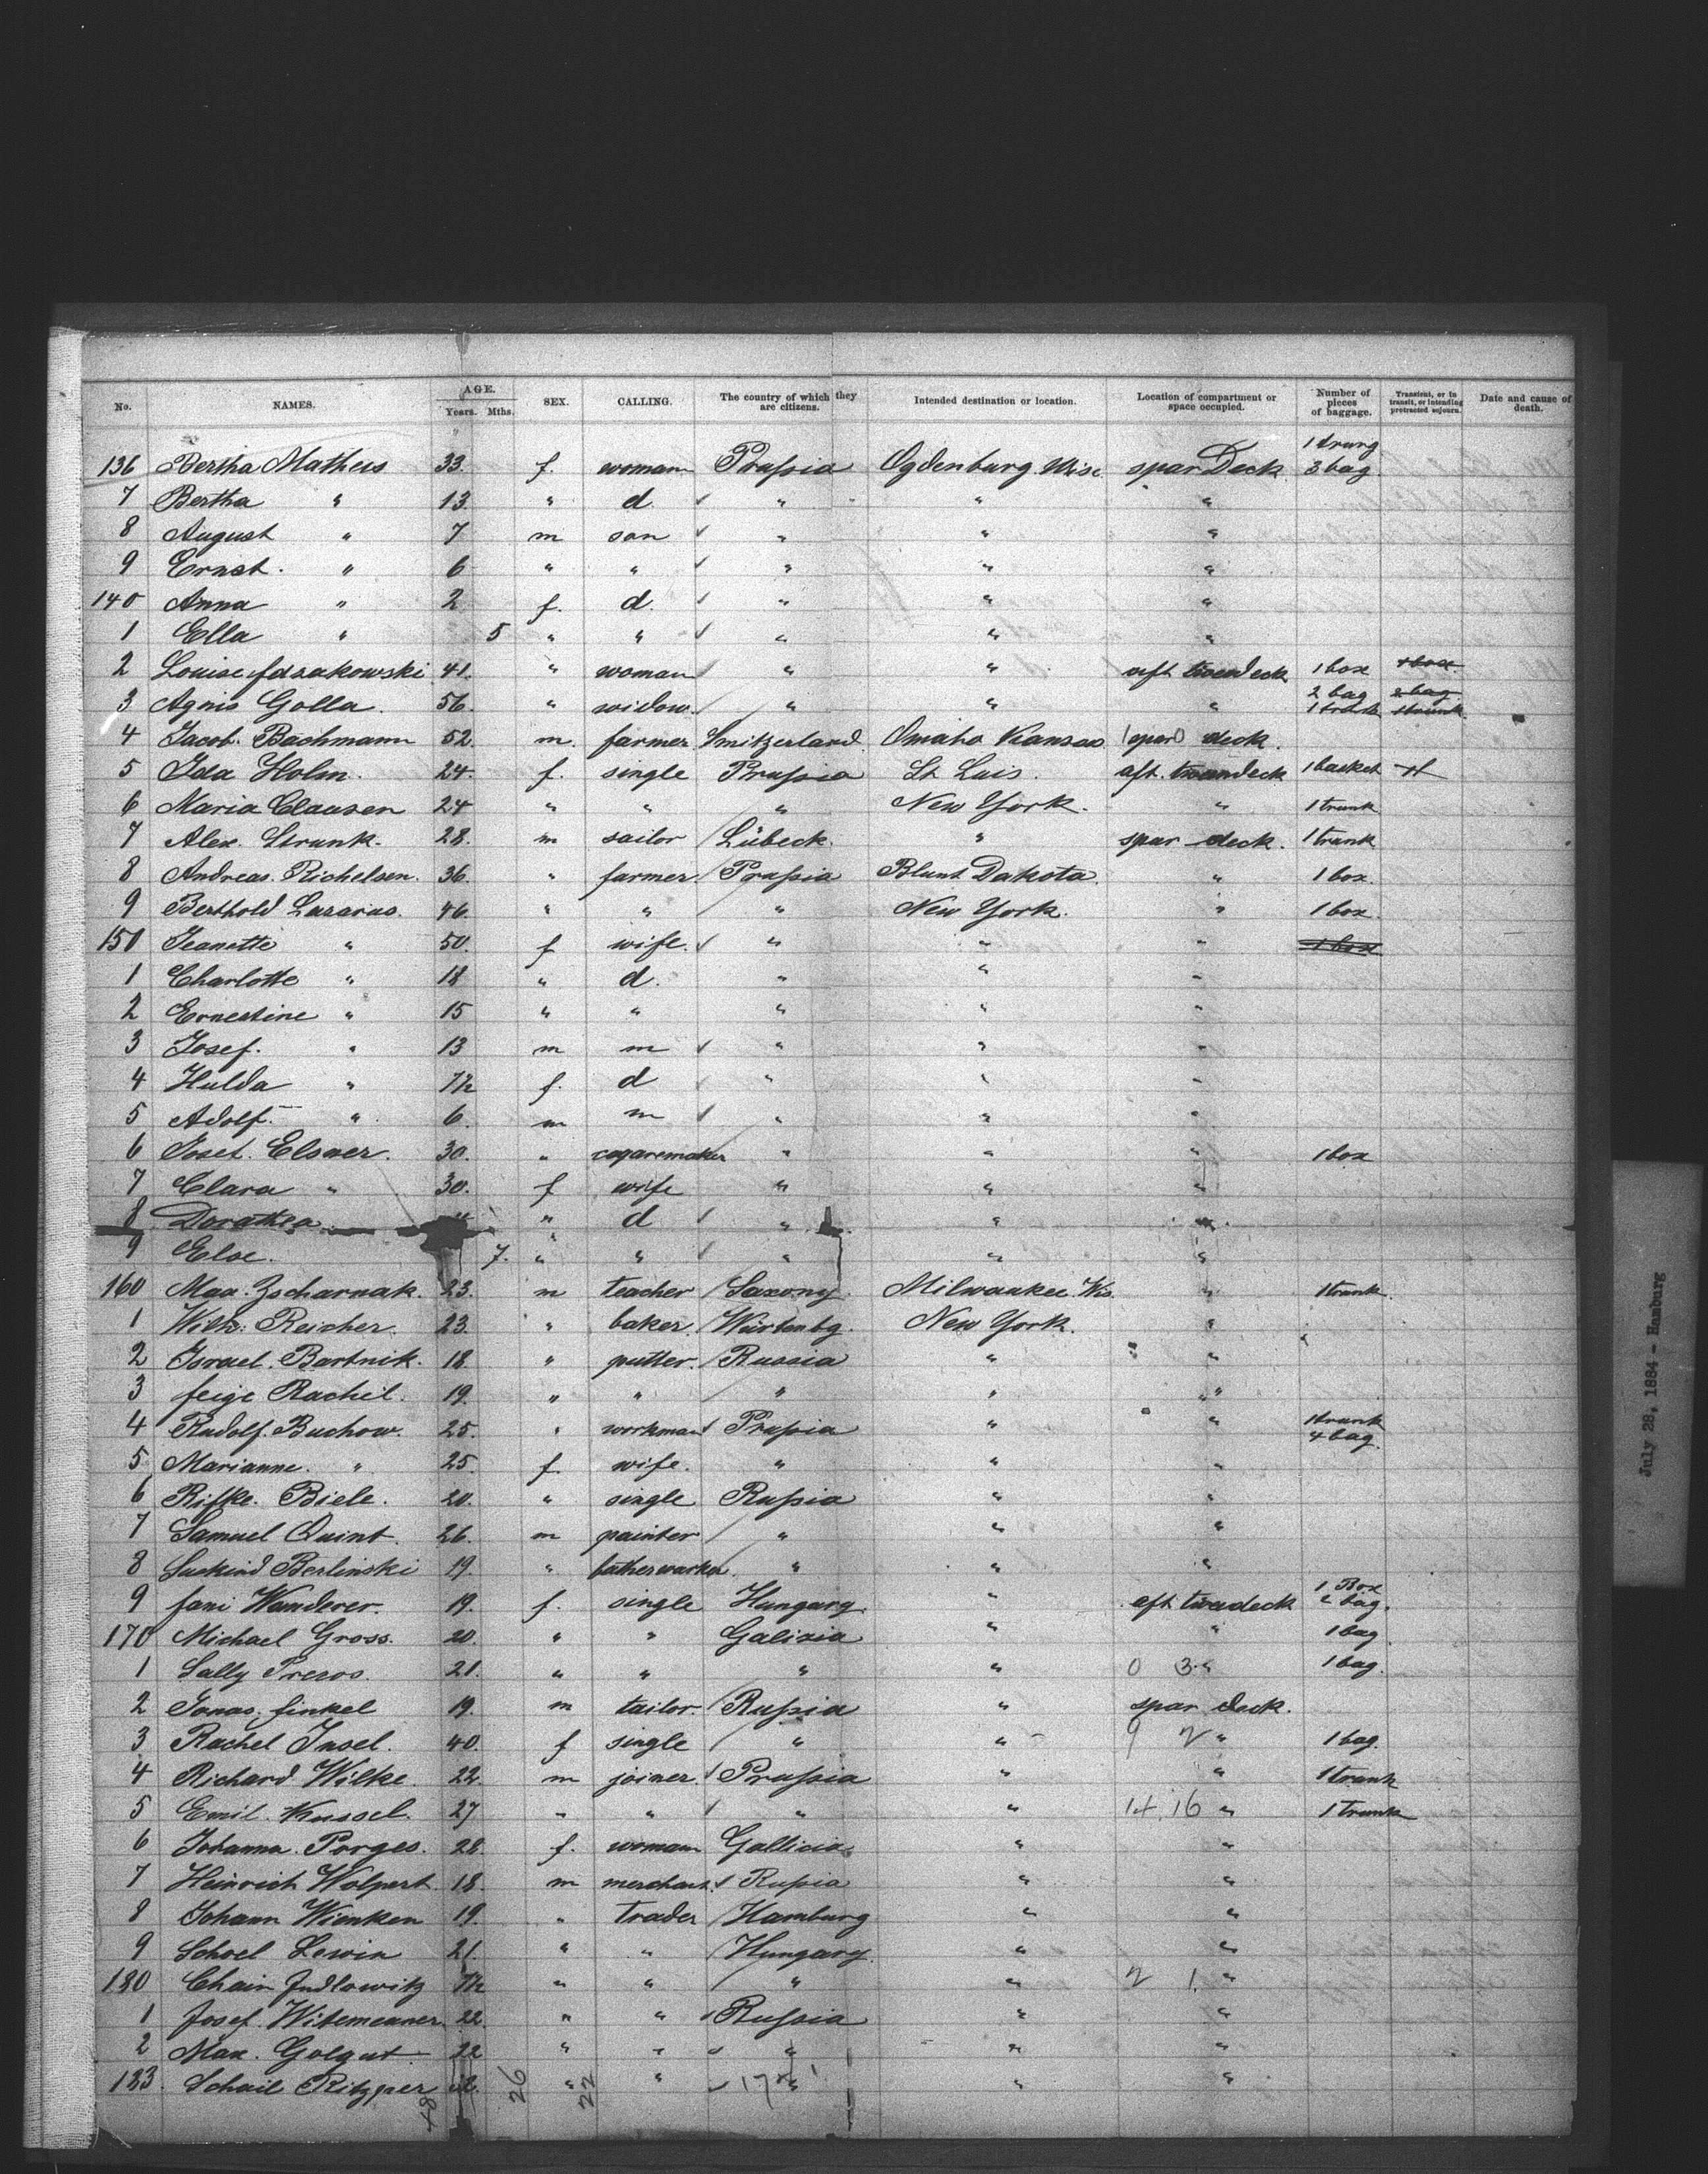 AGE.
No. NAMES. Years. Mths. SEX. CALLING. The country of which they are citizens. Intended destination or location. Location of compartment or space occupied. Number of pieces of baggage. Transient, or in transit, or intending protracted sojourn. Date and cause of death.
136 Bertha Matheus 33. f. woman Prussia Ogdenburg Wisc. spar Deck 1 trung 3 bag
7 Bertha " 13. " d. " " "
8 August " 7 m son " " "
9 Ernst. " 6 " " " " "
140 Anna " 2 f. d. " " "
1 Ella " 5 " " " " "
2 Louise 41. " woman " " aft. tweendeck 1 box 1 box
3 Agnis Golla. 56. " widow. " " " 2 bag 1 trunk 2 bag 1 trunk
4 Jacob. Bachmann 52. m. farmer Smitzerland. Omaha Kansas spar deck.
5 Ida Holm. 24. f. single Prussia St Luis. aft. tweendeck 1 basket
6 Maria Clausen 24 " " " New York. " 1 trunk
7 Alex. Strunk. 28. m sailor Lübeck. " spar deck. 1 trunk
8 Andreas. Richelsen. 36. " farmer. Prussia Blunt Dakota. " 1 box.
9 Berthold Lazarus. 46. " " " New York. " 1 box.
150 Jeanette " 50. f wife. " " " 1 box
1 Charlotte " 18 " d. " " "
2 Ernestine " 15 " " " " "
3 Josef. " 13 m m " " "
4 Hulda " 7½ f. d " " "
5 Adolf. " 6. m m " " "
6 Josef. Elsner. 30. " cagaremaker " " " 1 box
7 Clara " 30. f wife " " "
8 Dorathea " d " " "
9 Else. 7. " " " " "
160 Max. Zscharnak. 23. m teacher Saxony. Milwaukee. Wis. " 1 trunk.
1 Wilh. Reicher. 23. " baker. Würtenbg. New York. "
2 Israel. Bartnik. 18. " putter. Russia " "
3 feige Rachil. 19. " " " " "
4 Rudolf. Buchow. 25. " workman Prussia " " 1 trunk 4 bag.
5 Marianne. " 25. f. wife. " " "
6 Rifke. Biele. 20. " single Russia " "
7 Samuel Quint. 26. m painter " " "
8 Suskind Berlinski 19. " " " "
9 fani Wanderer. 19. f. single Hungary. " aft tweendeck 1 Box 2 bag.
170 Michael Gross. 20. " " Galizia " " 1 bag.
1 Sally Preros. 21. " " " " 0 3. " 1 bag.
2 Jonas. finkel 19. m tailor. Russia " spar deck.
3 Rachel Insel. 40. f single " " 9 2 " 1 bag.
4 Richard Wilke. 22. m joiner. Prussia " " 1 trunk
5 Emil. Kussel. 27 " " " " 14. 16 " 1 trunk
6 Johanna. Porges. 28. f. woman Gallicia " "
7 Heinrich Wolpert. 18. m merchant. Russia " "
8 Johann Wienken 19. " Trader Hamburg " "
9 Schoel Lewin 21. " " Hungary. " "
180 Chain Judlowitz 7½ " " " " 2 1. "
1 Josef. Witemeaner. 22. " " Russia " "
2 Max. Golgut. 22 " " " " "
183. Schail Ritzger " " 17 " " "
48 26 22
July 28, 1884 - Hamburg